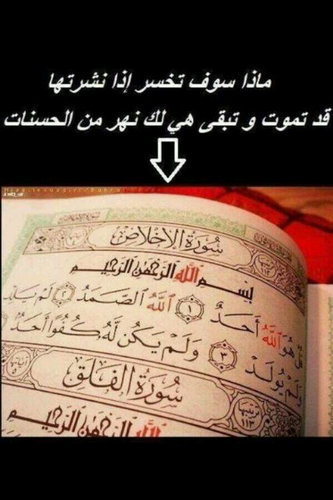 ماذا سوف تخسر إذا نشرتها
قد تموت و تبقى هي لك نهر من الحسنات
سُورَةُ الإِخْلَاصِ
بِسْمِ اللَّهِ الرَّحْمَٰنِ الرَّحِيمِ
هُوَ اللَّهُ أَحَدٌ ١ اللَّهُ الصَّمَدُ ٢ لَمْ يَلِدْ
وَلَمْ يُولَدْ ٣ وَلَمْ يَكُن لَّهُ كُفُوًا أَحَدٌ
سُورَةُ الْفَلَقِ
ترتيبها
١١٣
بِسْمِ اللَّهِ الرَّحْمَٰنِ الرَّحِيمِ